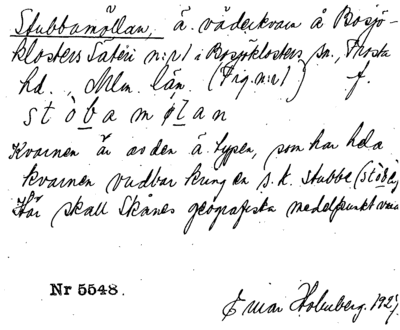 Stubbamöllan, ä. väderkvarn å Bosjö-
klosters Säteri n:r 1 i Bosjöklosters sn, Frosta
hd., Mlm. län. (Frg. n:r 1) f.
stòbamølan
Kvarnen är av den ä. typen, som har hela
kvarnen vridbar kring en s. k. stubbe
Här skall Skånes geografiska medelpunkt vara
Nr 5548.
Einar Holmberg. 192